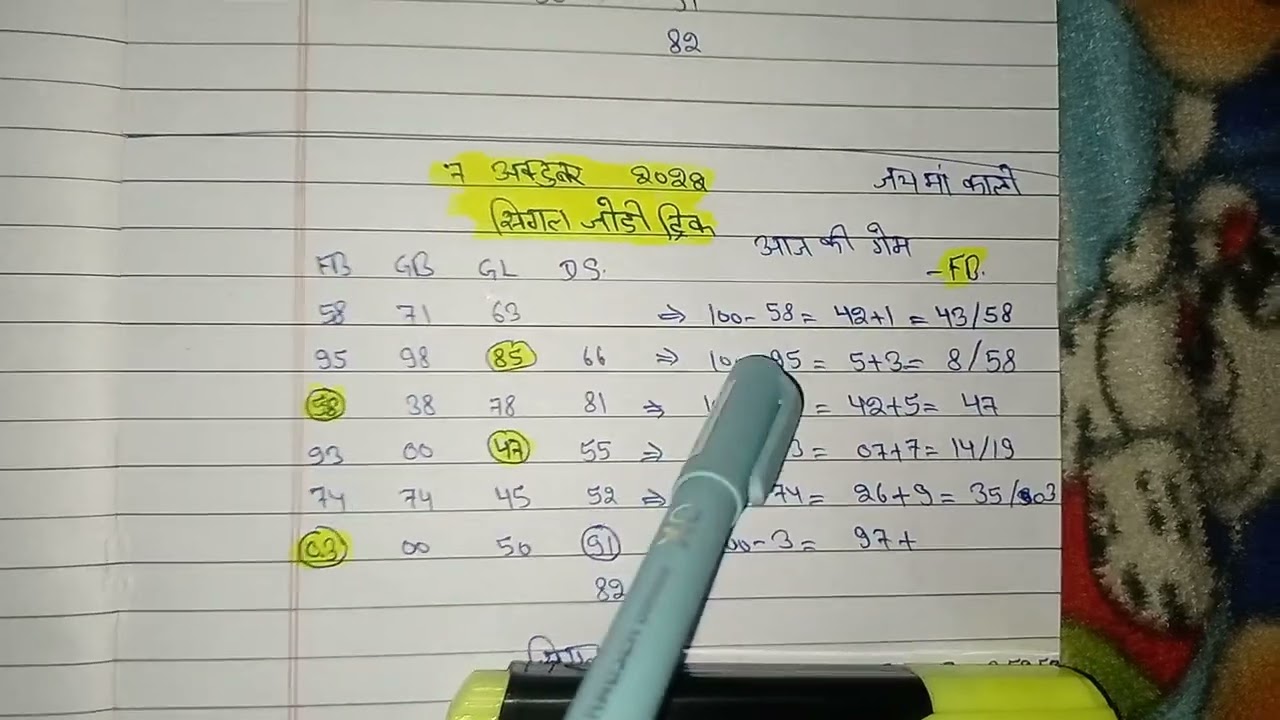 82
७ अक्टुबर २०२२ जय मां काली
सिंगल जोडी ट्रिक
आज की गेम
FB GB GL DS. - FB.
58 71 63 ⇒ 100- 58 = 42+1 = 43/58
95 98 85 66 ⇒ 95 = 5+3= 8/58
58 38 78 81 ⇒ = 42+5= 47
93 00 47 55 ⇒ 3= 07+7= 14/19
74 74 45 52 ⇒ 74= 26+9= 35/03
03 00 50 91 00-3= 97+
82